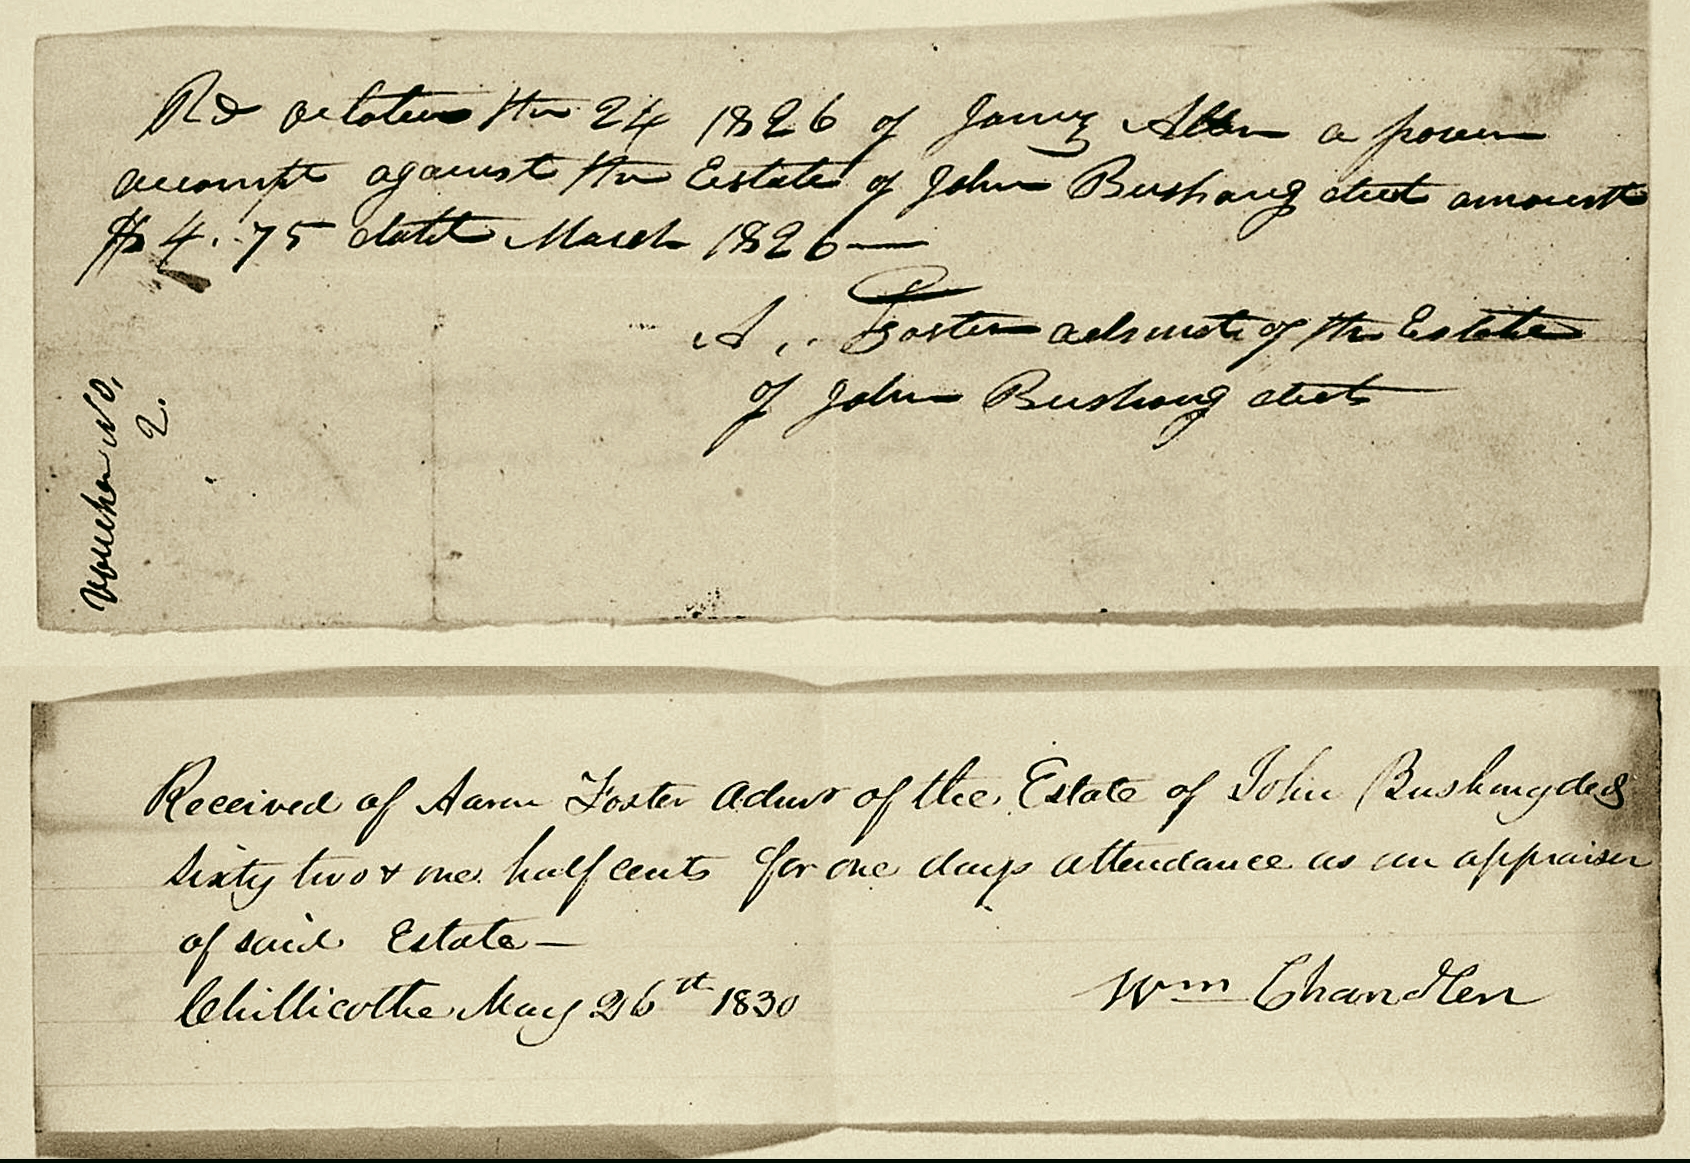 Rd october the 24 1826 of James Allen a proven
accompt against the Estate of John Bushang decd amount
$4.75 datd March 1826 —
A. Foster admnt of the Estate
of John Bushong decd
Voucher No.
2.
Received of Aaron Foster Admr of the Estate of John Bushong decd
sixty two & one half cents for one days attendance as an appraiser
of said Estate —
Chillicothe May 26th 1830
Wm Chandler